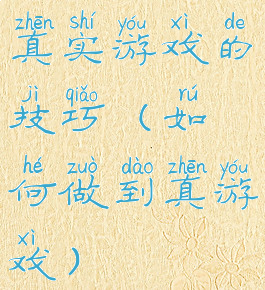 zhēn shí yóu xì de
真实游戏的
jì qiǎo rú
技巧(如
hé zuò dào zhēn yóu
何做到真游
xì
戏)